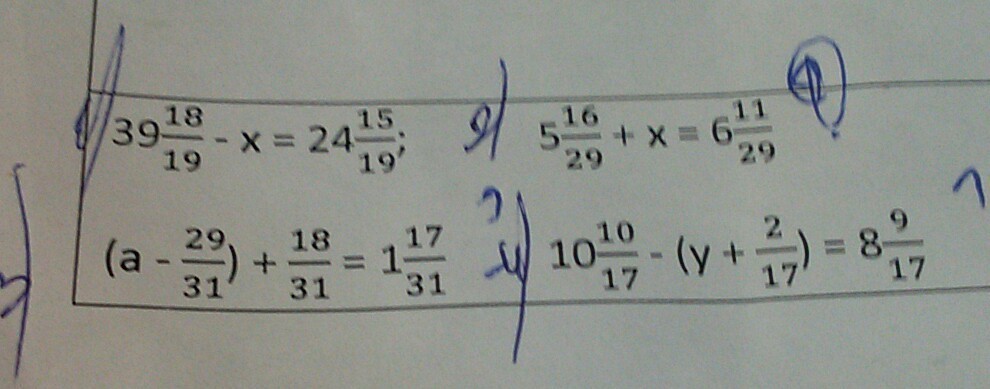 1) 39 18/19 - x = 24 15/19; 2) 5 16/29 + x = 6 11/29
3) (a - 29/31) + 18/31 = 1 17/31 4) 10 10/17 - (y + 2/17) = 8 9/17